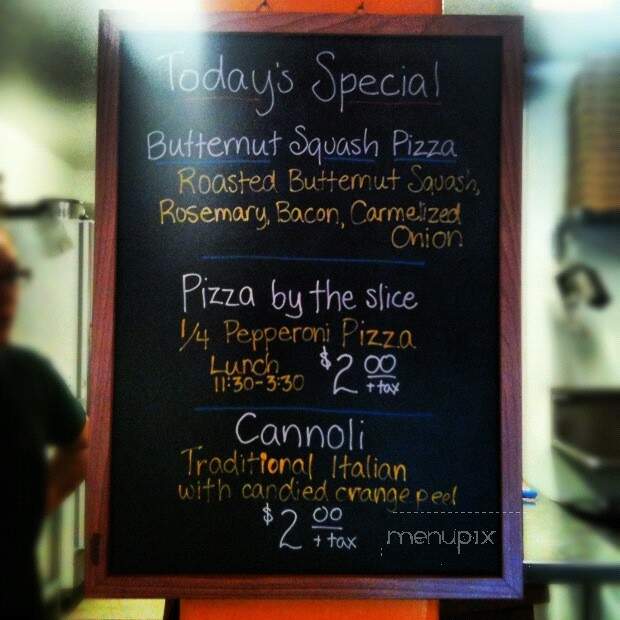 Today's Special
Butternut Squash Pizza
Roasted Butternut Squash,
Rosemary, Bacon, Carmelized
Onion
Pizza by the slice
1/4 Pepperoni Pizza
Lunch
11:30-3:30
$2 00 + tax
Cannoli
Traditional Italian
with candied orange peel
$2 00 + tax
menupix